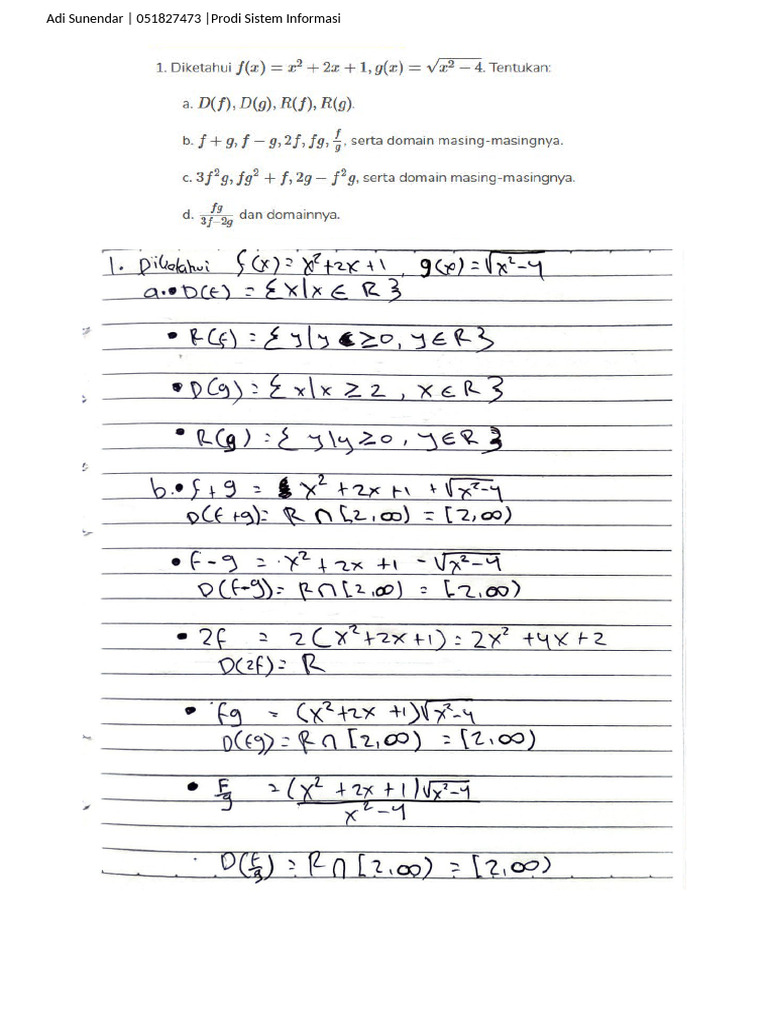 Adi Sunendar | 051827473 |Prodi Sistem Informasi
1. Diketahui f(x) = x² + 2x + 1, g(x) = √(x² − 4). Tentukan:
a. D(f), D(g), R(f), R(g).
b. f + g, f − g, 2f, fg, f/g, serta domain masing-masingnya.
c. 3f²g, fg² + f, 2g − f²g, serta domain masing-masingnya.
d. fg/(3f−2g) dan domainnya.
1. Diketahui f(x) = x²+2x+1, g(x) = √(x²−4)
a. • D(f) = {x|x ∈ R}
• R(f) = {y|y ≥0, y∈R}
• D(g) = {x|x ≥ 2, x ∈ R}
• R(g) = {y|y ≥0, y∈R}
b. • f+g = x² + 2x +1 + √(x²−4)
D(f+g) = R ∩ [2,∞) = [2,∞)
• f−g = x² + 2x +1 − √(x²−4)
D(f−g) = R ∩ [2,∞) = [2,∞)
• 2f = 2(x²+2x+1) = 2x² +4x+2
D(2f) = R
• fg = (x²+2x +1)√(x²−4)
D(fg) = R ∩ [2,∞) = [2,∞)
• f/g = (x² + 2x + 1)√(x²−4) / x²−4
D(f/g) = R ∩ [2,∞) = [2,∞)